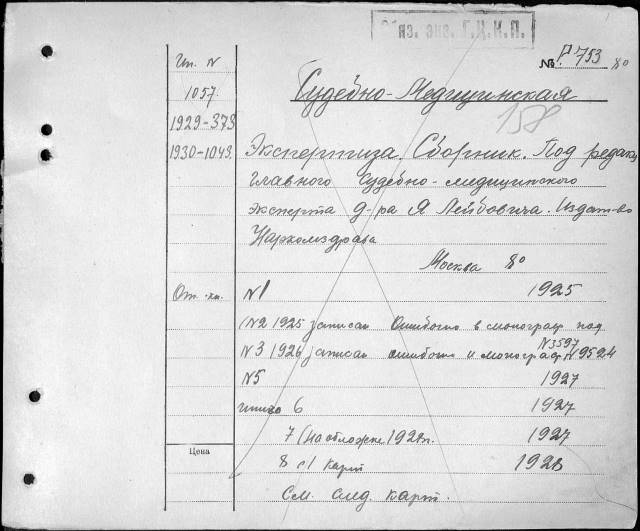 Обяз. экз. Г.Ц.К.П.
№ P753 8º
Ин. N
1057
1929-373
1930-1043
Судебно-Медицинская
158
Экспертиза. Сборник. Под редакц
Главного Судебно-медицинского
эксперта д-ра Я Лейбовича. Издат-во
Наркомздрава
Москва 8º
От. кн.
N1 1925
(N2 1925 записан ошибочно в монограф под
N3597
N3 1926 записан ошибочно и монограф N9524
N5 1927
6 1927
7 (На обложке 1928 г. 1927
8 с 1 карт 1928
См. след. карт.
Цена